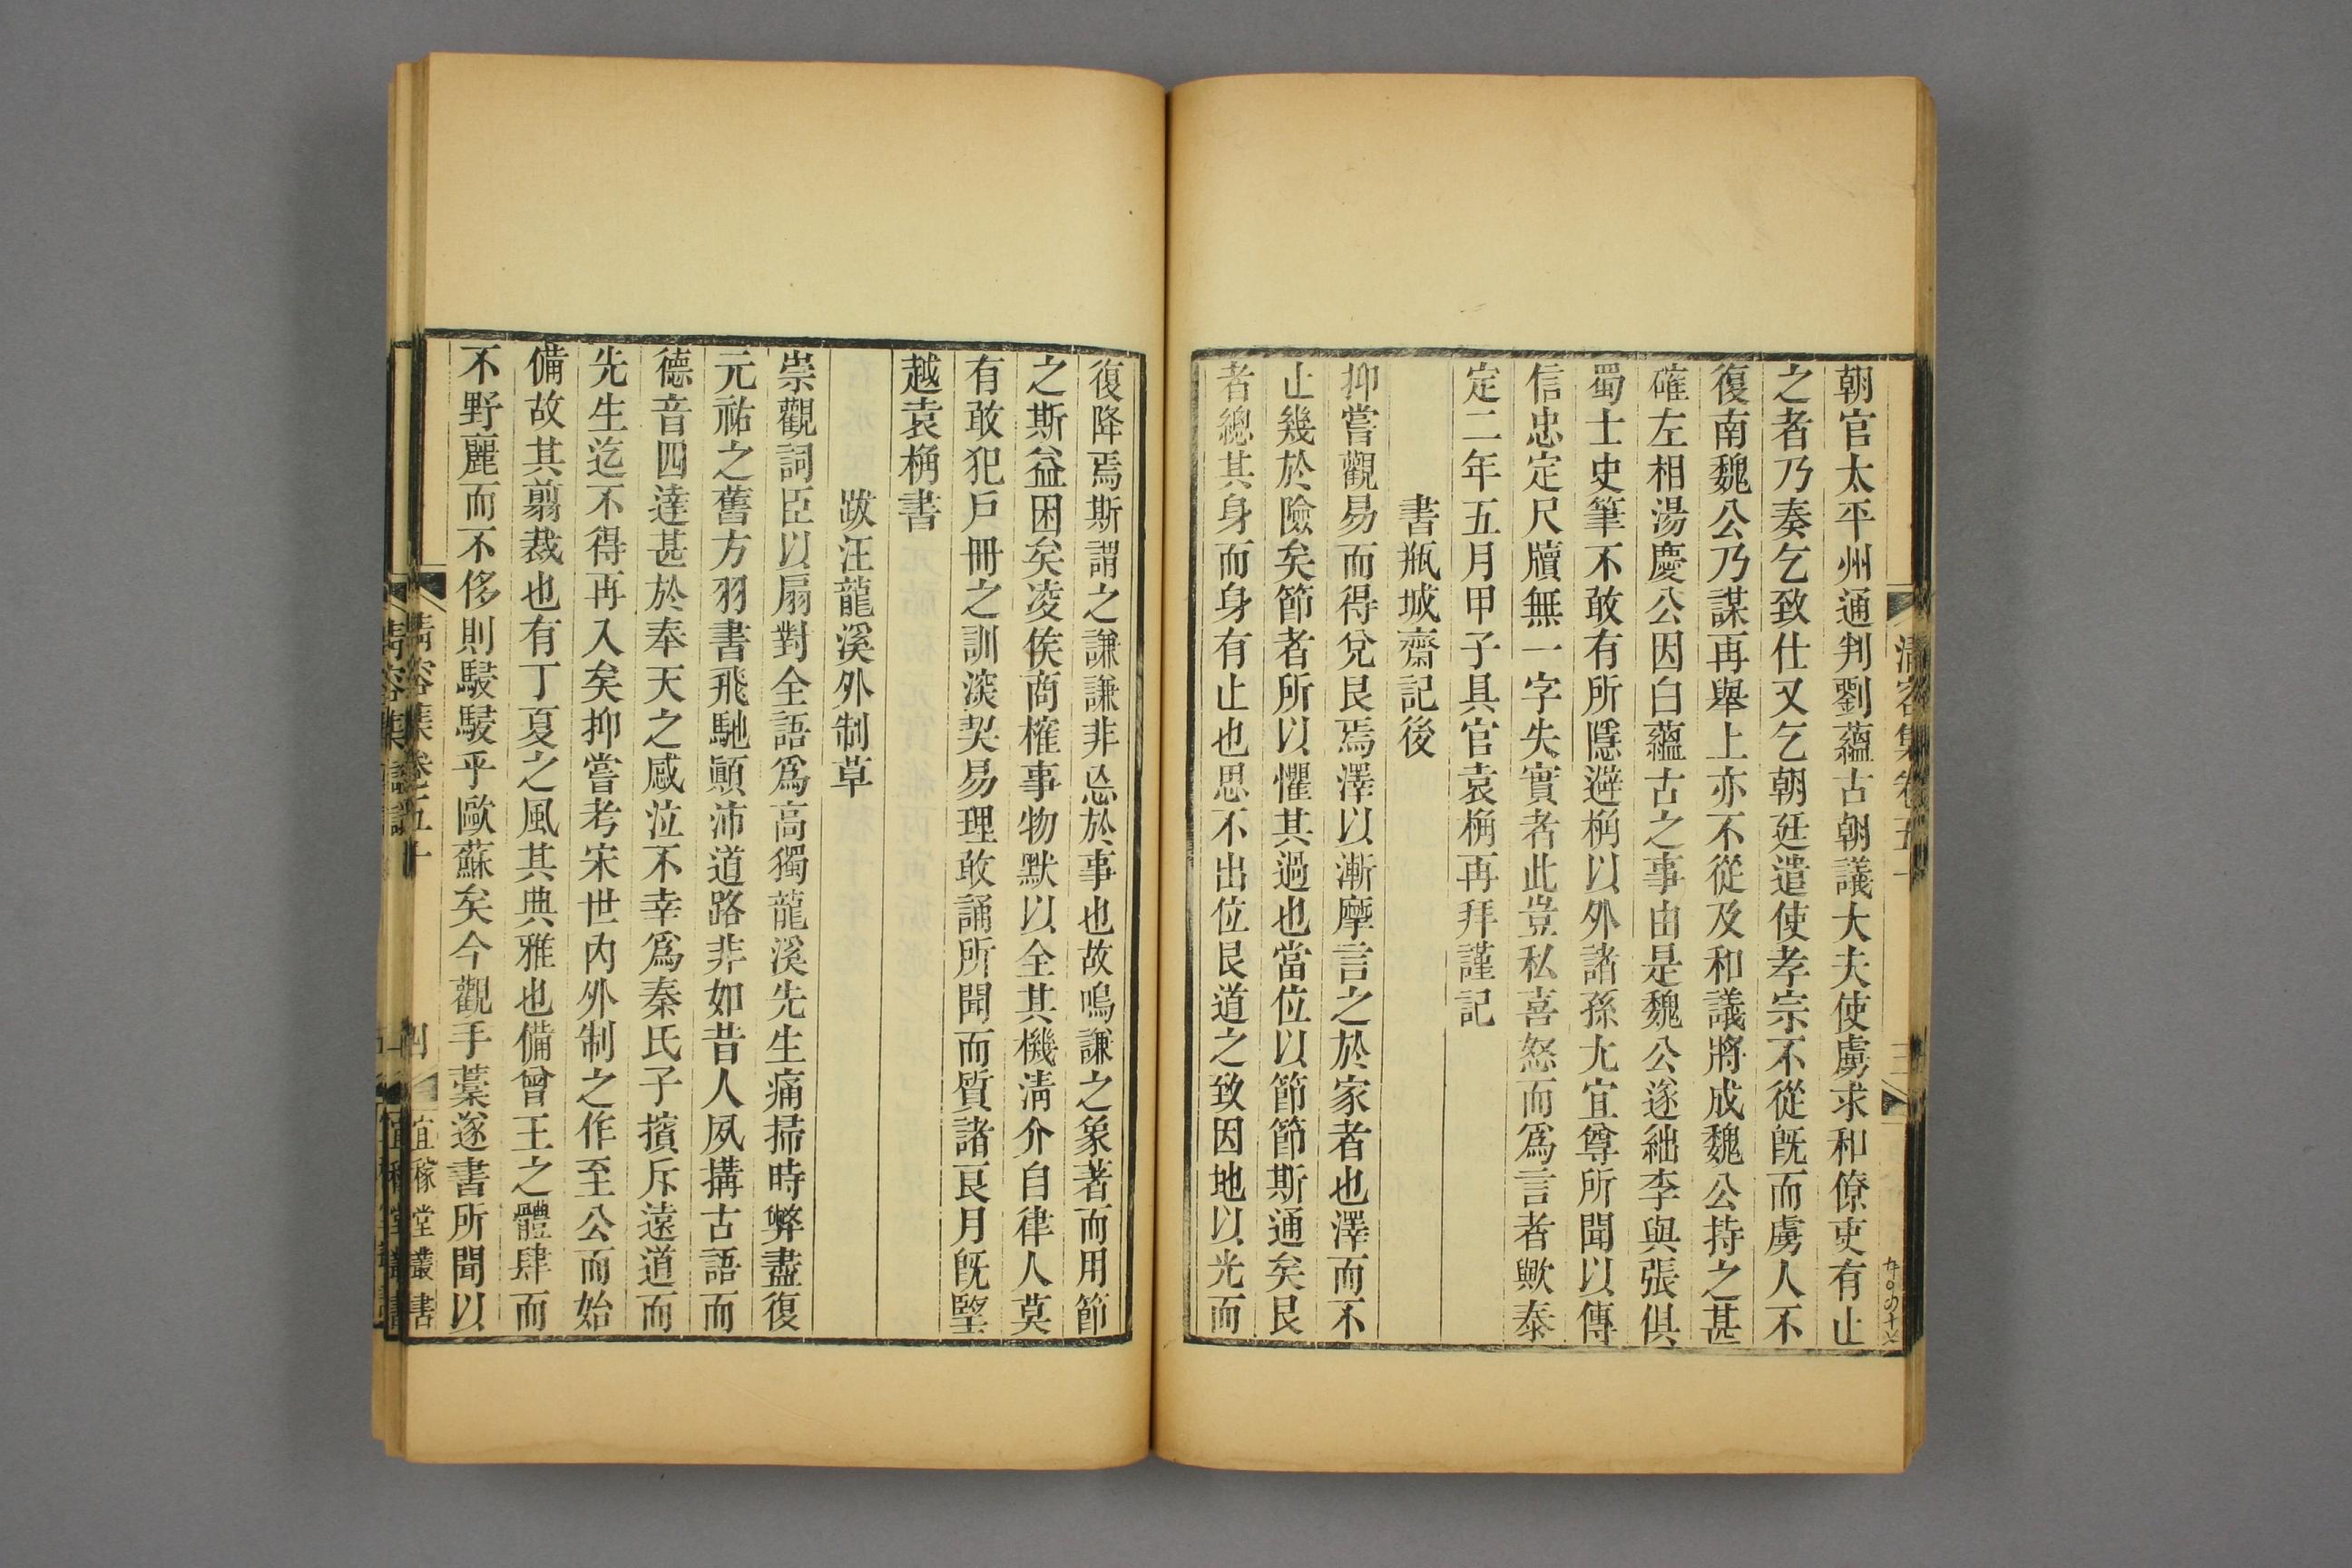 朝官太平州通判劉蘊古朝議大夫使虜求和僚吏有止
之者乃奏乞致仕又乞朝廷遣使孝宗不從旣而虜人不
復南魏公乃謀再舉上亦不從及和議將成魏公持之甚
確左相湯慶公因白蘊古之事由是魏公遂絀李與張俱
蜀士史筆不敢有所隱避桷以外諸孫尢宜尊所聞以傳
信忠定尺牘無一字失實者此豈私喜怒而爲言者歟泰
定二年五月甲子具官袁桷再拜謹記
書瓶城齋記後
抑嘗觀易而得兌艮焉澤以漸摩言之於家者也澤而不
止幾於險矣節者所以懼其過也當位以節節斯通矣艮
者總其身而身有止也思不出位艮道之致因地以光而
復降焉斯謂之謙謙非忌於事也故鳴謙之象著而用節
之斯益困矣凌侯商榷事物默以全其機淸介自律人莫
有敢犯戶冊之訓深契易理敢誦所聞而質諸良月旣朢
越袁桷書
跋汪龍溪外制草
崇觀詞臣以扇對全語爲高獨龍溪先生痛掃時弊盡復
元祐之舊方羽書飛馳顚沛道路非如昔人夙搆古語而
德音四達甚於奉天之感泣不幸爲秦氏子擯斥遠道而
先生迄不得再入矣抑嘗考宋世內外制之作至公而始
備故其翦裁也有丁夏之風其典雅也備曾王之體肆而
不野麗而不侈則駸駸乎歐蘇矣今觀手藁遂書所聞以
淸容集卷五十
三
淸容集卷五十
宜稼堂叢書